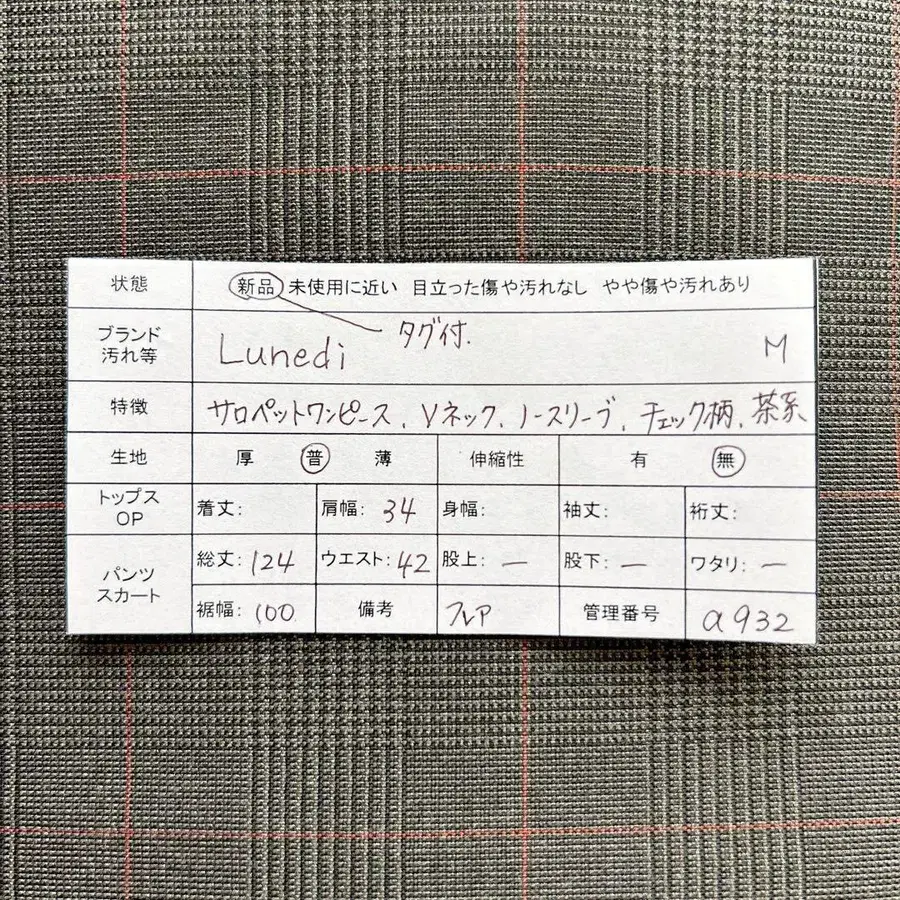 状態 新品 未使用に近い 目立った傷や汚れなし やや傷や汚れあり
タグ付.
ブランド
汚れ等 Lunedi M
特徴 サロペットワンピース、Vネック、ノースリーブ、チェック柄、茶系
生地 厚 普 薄 伸縮性 有 無
トップス
OP 着丈: 肩幅: 34 身幅: 袖丈: 裄丈:
パンツ
スカート 総丈: 124 ウエスト: 42 股上: ― 股下: ― ワタリ: ―
裾幅: 100 備考 フレア 管理番号 a932